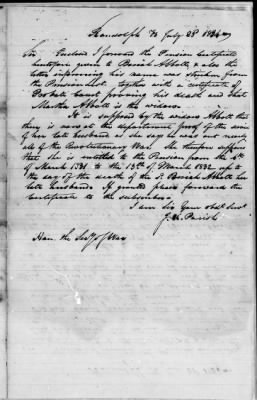 Randolph Vt July 28th 1834
Sir Enclosed I forward the Pension Certificate
heretofore given to Beriah Abbott, & also the
letter informing his name was stricken from
the Pension list, together with a certificate of
Probate Court proving his death and that
Martha Abbott is the widow
It is supposed by the widow Abbott that
there is now at the department proof of the service
of her late husband as she says he was out nearly
all of the Revolutionary War. She therefore supposes
that she is entitled to the Pension from the 4th
of March 1831 to the 13th of March 1832 up to
the day of the death of the sd. Beriah Abbott her
late husband. If granted please forward the
Certificate to the subscriber
I am Sir Your obdt. Servt
J. K. Parish
Hon. the Secy of War